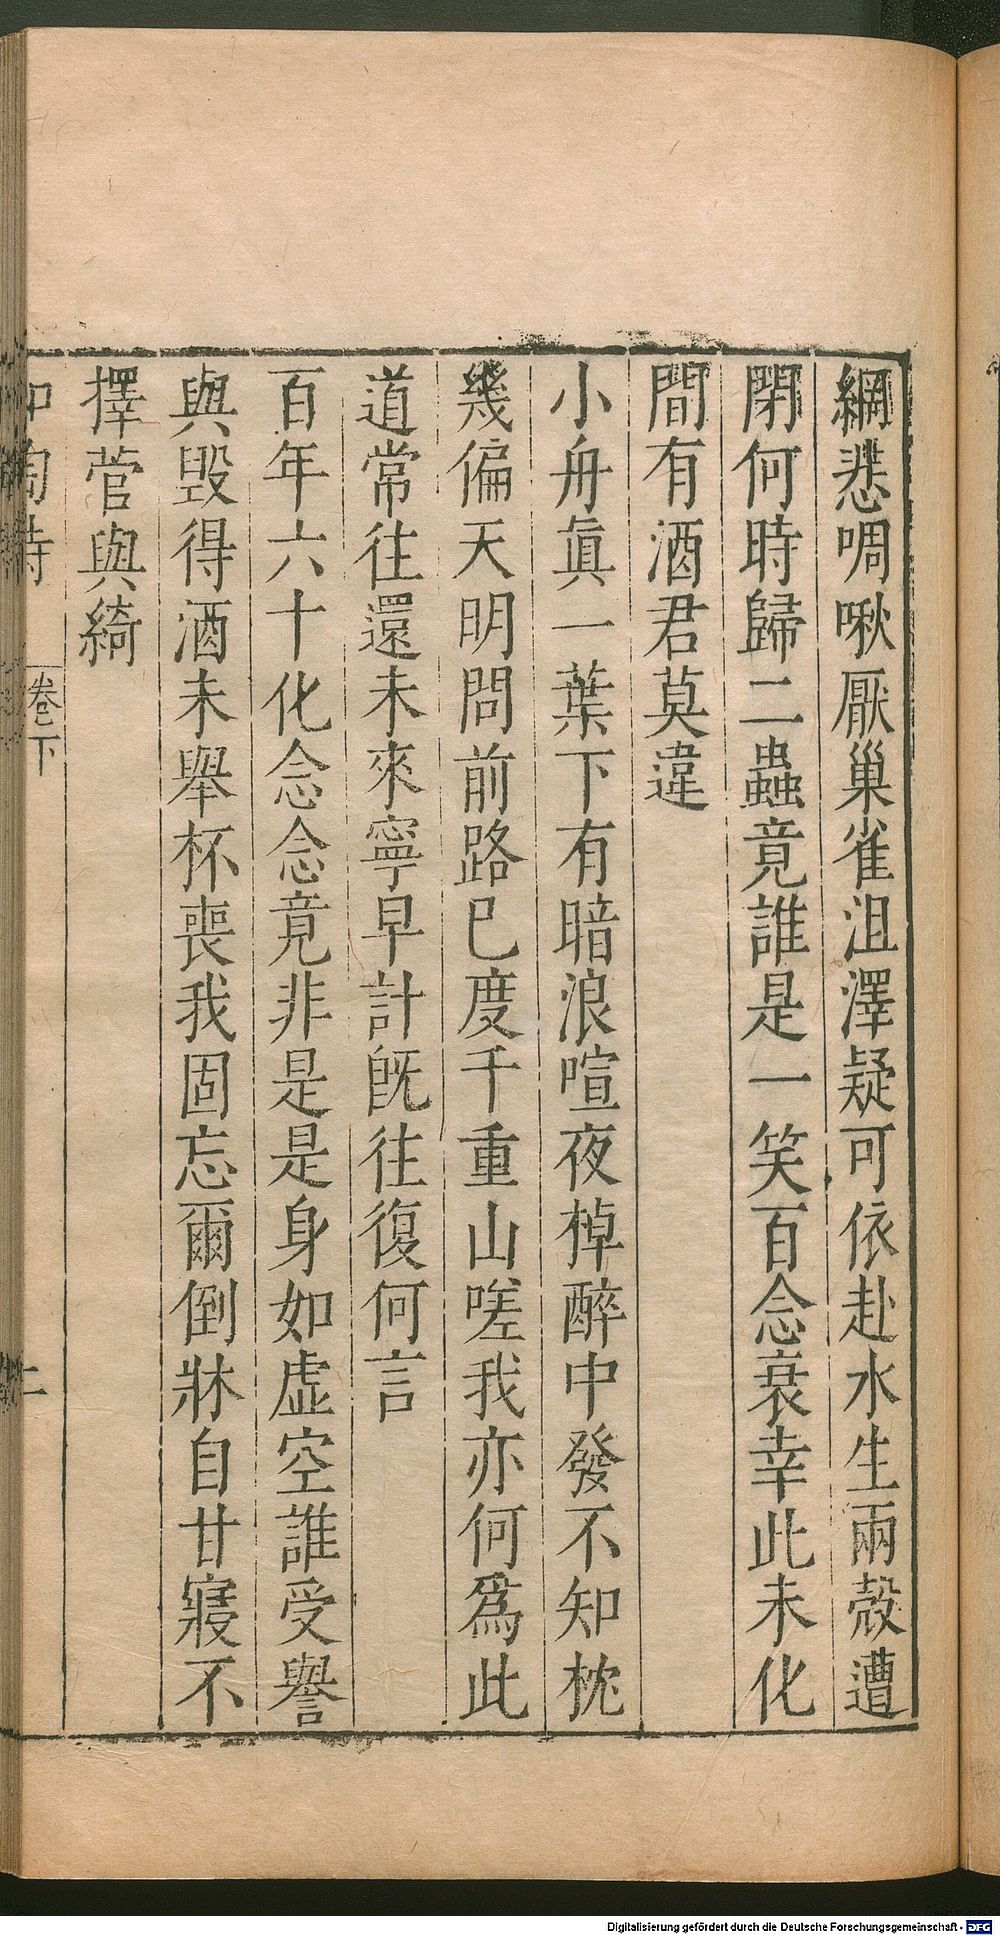 網悲啁啾厭巢雀沮澤疑可依赴水生兩殼遭
閉何時歸二蟲竟誰是一笑百念衰幸此未化
間有酒君莫違
小舟眞一葉下有暗浪喧夜棹醉中發不知枕
幾偏天明問前路已度千重山嗟我亦何爲此
道常往還未來寧早計既往復何言
百年六十化念念竟非是是身如虛空誰受譽
與毀得酒未舉杯喪我固忘爾倒牀自甘寢不
擇菅與綺
和陶詩
卷下
二
Digitalisierung gefördert durch die Deutsche Forschungsgemeinschaft - DFG